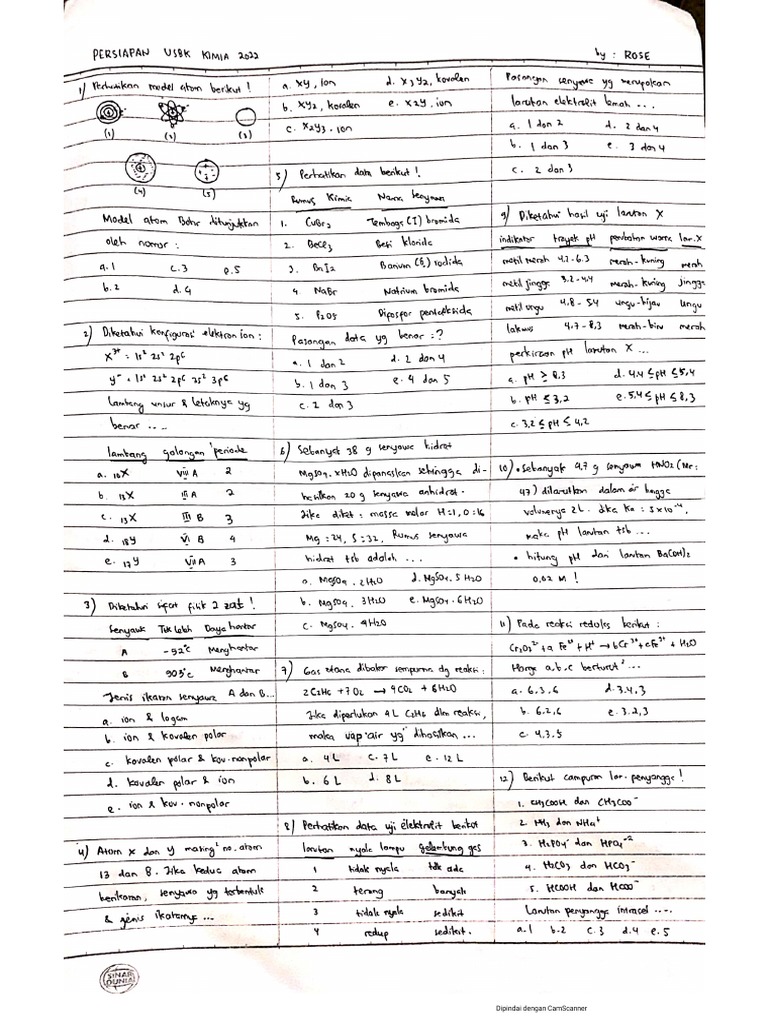 PERSIAPAN USBK KIMIA 2022
by : ROSE
1) Perhatikan model atom berikut !
(1) (2) (3)
(4) (5)
Model atom Bohr ditunjukkan
oleh nomor :
a. 1 c. 3 e. 5
b. 2 d. 4
2) Diketahui konfigurasi elektron ion :
X³⁺ = 1s² 2s² 2p⁶
y⁻ = 1s² 2s² 2p⁶ 3s² 3p⁶
Lambang unsur & letaknya yg
benar ....
lambang golongan periode
a. ₁₀X VIII A 2
b. ₁₃X III A 2
c. ₁₃X III B 3
d. ₁₈Y VI B 4
e. ₁₇Y VII A 3
3) Diketahui sifat fisik 2 zat !
Senyawa Ttk leleh Daya hantar
A -92°C Menghantar
B 903°C Menghantar
Jenis ikatan senyawa A dan B...
a. ion & logam
b. ion & kovalen polar
c. kovalen polar & kov. nonpolar
d. kovalen polar & ion
e. ion & kov. nonpolar
4) Atom X dan Y masing² no. atom
13 dan 8. Jika kedua atom
berikatan, senyawa yg terbentuk
& jenis ikatannya ...
a. XY, ion d. X3Y2, kovalen
b. XY2, kovalen e. X2Y, ion
c. X2Y3, ion
5) Perhatikan data berikut !
Rumus Kimia Nama Senyawa
1. CuBr2 Tembaga (I) bromida
2. Besi klorida
3. BaI2 Barium
4. NaBr Natrium bromida
5. P2O5 Difosfor pentaoksida
Pasangan data yg benar : ?
a. 1 dan 2 d. 2 dan 4
b. 1 dan 3 e. 4 dan 5
c. 2 dan 3
6) Sebanyak 38 g senyawa hidrat
MgSO4. xH2O dipanaskan sehingga di-
hasilkan 20 g senyawa anhidrat.
Jika diket : massa molar H=1, O=16
Mg = 24, S = 32, Rumus senyawa
hidrat tsb adalah ...
a. MgSO4 . 2H2O d. MgSO4. 5H2O
b. MgSO4. 3H2O e. MgSO4. 6H2O
c. MgSO4. 4H2O
7) Gas etana dibakar sempurna dg reaksi :
2C2H6 + 7O2 → 4CO2 + 6H2O
Jika diperlukan 4 L C2H6 dlm reaksi,
maka uap air yg dihasilkan ...
a. 4 L c. 7 L e. 12 L
b. 6 L d. 8 L
8) Perhatikan data uji elektrolit berikut
larutan nyala lampu gelembung gas
1 tidak nyala tdk ada
2 terang banyak
3 tidak nyala sedikit
4 redup sedikit.
Pasangan senyawa yg merupakan
larutan elektrolit lemah ...
a. 1 dan 2 d. 2 dan 4
b. 1 dan 3 e. 3 dan 4
c. 2 dan 3
9) Diketahui hasil uji larutan X
indikator trayek pH perubahan warna lar. X
metil merah 4.2 - 6.3 merah - kuning merah
metil jingga 3.2 - 4.4 merah - kuning jingga
metil ungu 4.8 - 5.4 ungu - hijau ungu
lakmus 4.7 - 8,3 merah - biru merah
perkiraan pH larutan X ...
a. pH ≥ 8,3 d. 4,4 ≤ pH ≤ 5,4
b. pH ≤ 3,2 e. 5,4 ≤ pH ≤ 8,3
c. 3,2 ≤ pH ≤ 4,2
10) • Sebanyak 4.7 g senyawa HNO2 (Mr:
47) dilarutkan dalam air hingga
volumenya 2L. Jika Ka : 5×10⁻⁴,
maka pH larutan tsb ...
• hitung pH dari larutan Ba(OH)2
0,02 M !
11) Pada reaksi redoks berikut :
Cr2O7²⁻ + a Fe²⁺ + H⁺ → bCr³⁺ + cFe³⁺ + H2O
Harga a, b, c berturut² ...
a. 6.3.6 d. 3.4.3
b. 6.2.6 e. 3.2.3
c. 4.3.5
12) Berikut campuran lar. penyangga !
1. CH3COOH dan CH3COO⁻
2. NH3 dan NH4⁺
3. H2PO4⁻ dan HPO4⁻²
4. H2CO3 dan HCO3⁻
5. HCOOH dan HCOO⁻
Larutan penyangga intrasel ....
a. 1 b. 2 c. 3 d. 4 e. 5
SINAR
DUNIA
Dipindai dengan CamScanner